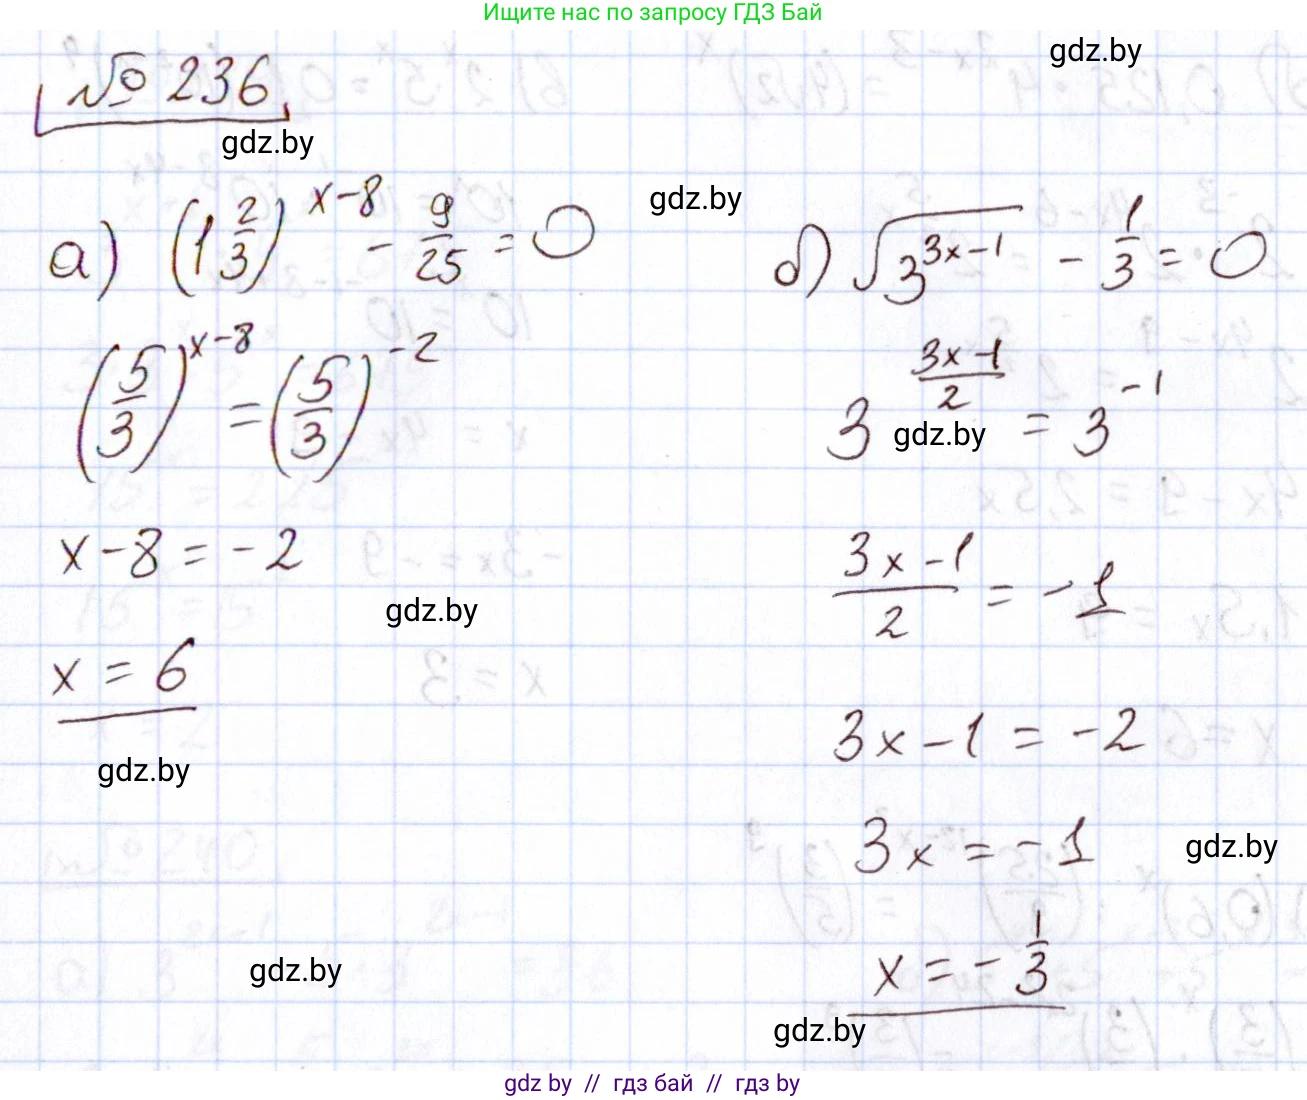 Ищите нас по запросу ГДЗ Бай
gdz.by
№ 236
gdz.by
gdz.by
а) (1 2/3)^(x-8) - 9/25 = 0
(5/3)^(x-8) = (5/3)^(-2)
x - 8 = -2
gdz.by
x = 6
gdz.by
gdz.by
б) √(3^(3x-1)) - 1/3 = 0
3^((3x-1)/2) = 3^(-1)
gdz.by
(3x-1)/2 = -1
3x - 1 = -2
3x = -1
gdz.by
x = -1/3
gdz.by
gdz by // гдз бай // гдз by